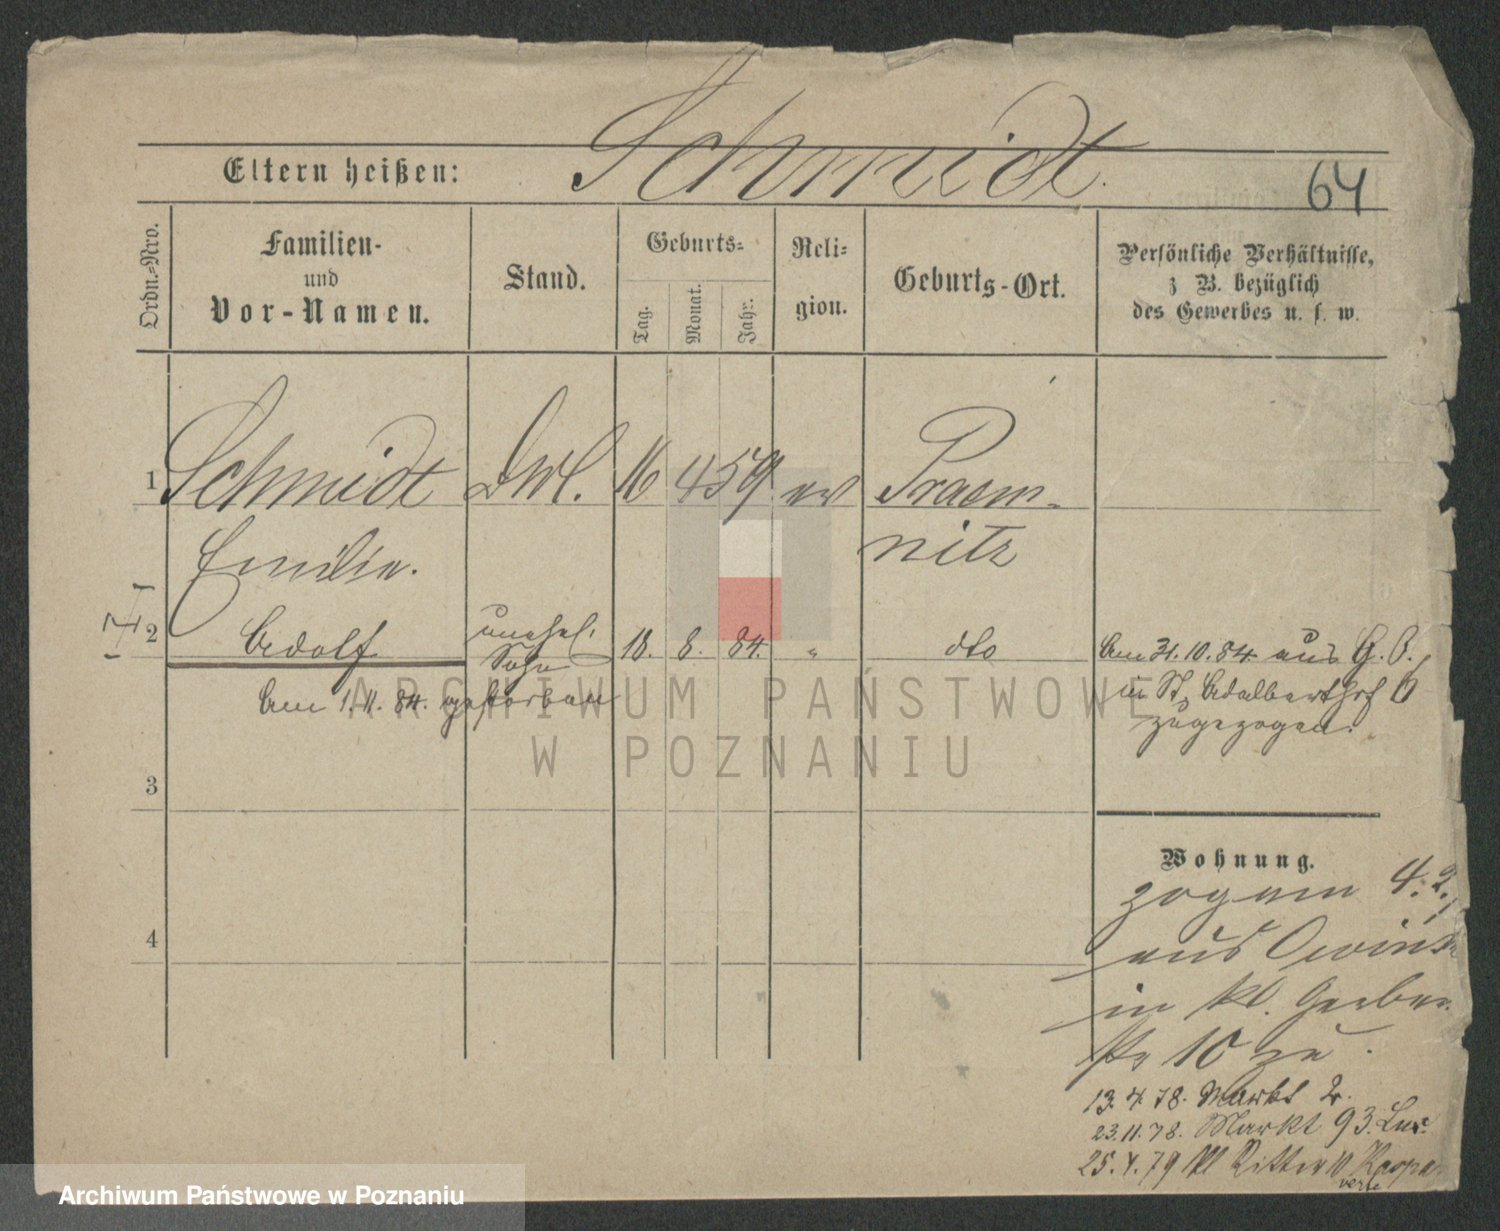 Schmidt.
Eltern heißen:
64
Ordn.-Nro.
Familien-
und
Vor-Namen.
Stand.
Geburts-
Tag.
Monat.
Jahr.
Reli-
gion.
Geburts-Ort.
Persönliche Verhältnisse,
z. B. bezüglich
des Gewerbes u. s. w.
1 Schmidt 16 4 59 ev
Emilie.
nitz
2 Adolf unehel. Sohn 18. 8. 84. " dto
Am 1.11.84. gestorben
Am 31.10.84. aus G. B.
in St. Adalbertstr 6
zugezogen.
3
4
Wohnung.
zog am 4.2.
aus
in kl. Gerber
str 10 zu.
13.4.78. Markt
23.11.78. Markt 93.
25.4.79 kl Ritter
ARCHIWUM PAŃSTWOWE
W POZNANIU
Archiwum Państwowe w Poznaniu